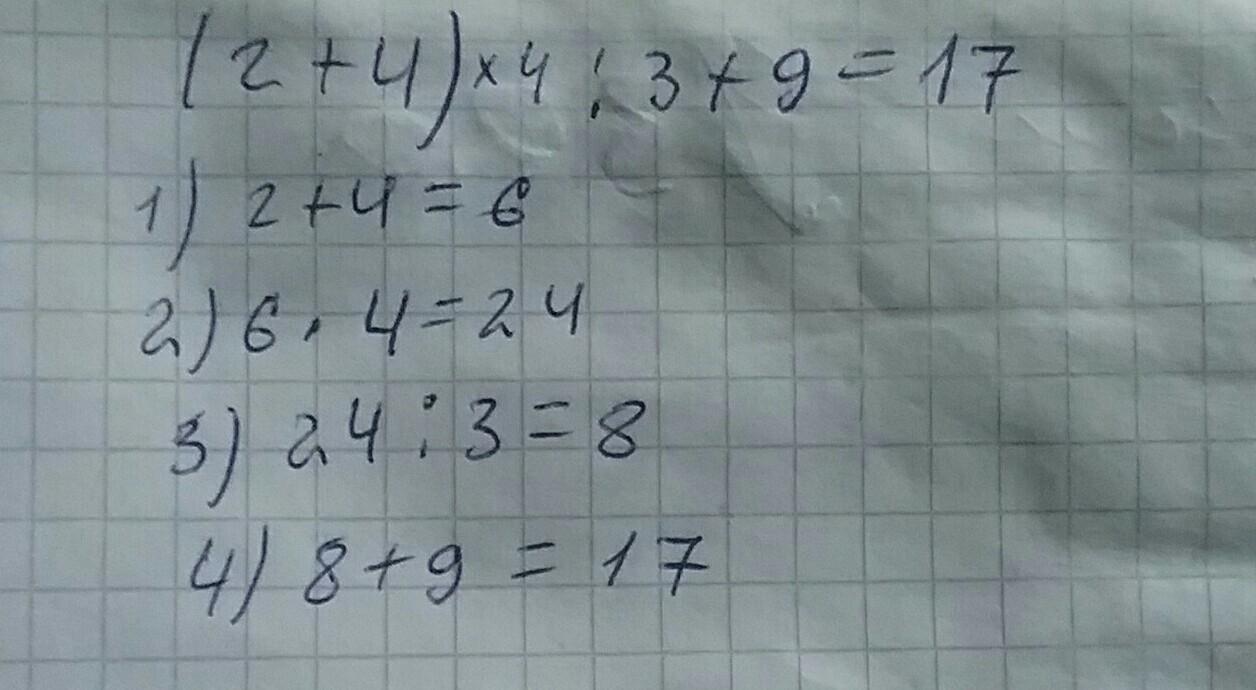 (2+4)×4:3+9=17
1) 2+4=6
2) 6·4=24
3) 24:3=8
4) 8+9=17